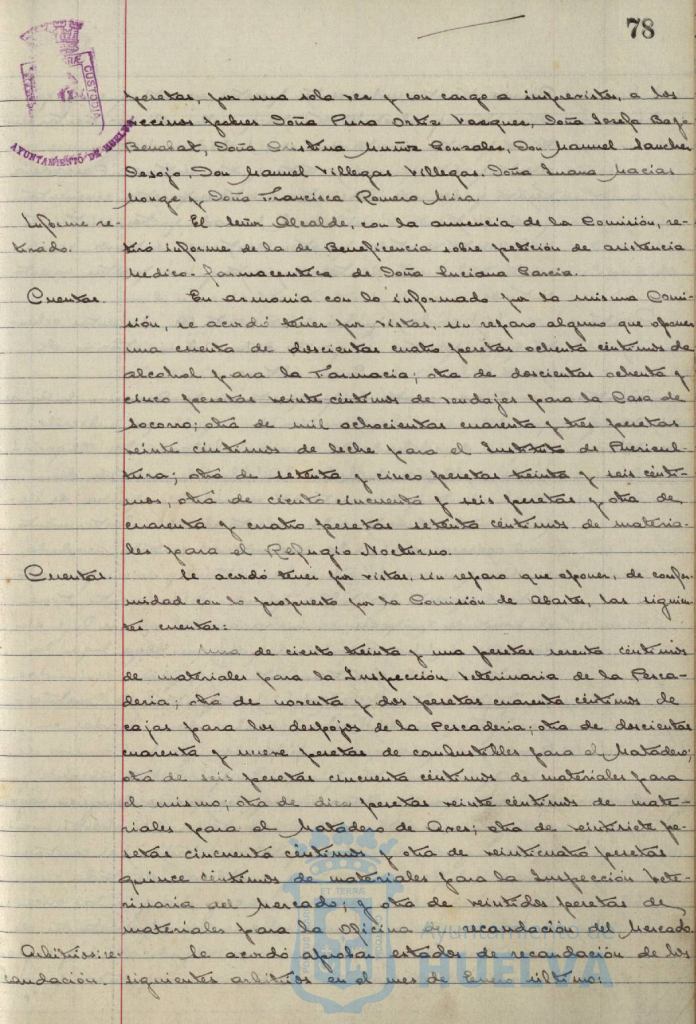 78
CUSTODIA
AYUNTAMIENTO DE HUELVA
pesetas, por una sola vez y con cargo a imprevistos, a los
vecinos pobres Doña Pura Ortiz Vazquez, Doña Josefa Baze
Benabat, Doña Cristina Muñoz Gonzalez, Don Manuel Sanchez
Desojo, Don Manuel Villegas Villegas, Doña Juana Macias
Monge y Doña Francisca Romero Mira.
Informe re- El Señor Alcalde, con la anuencia de la Comisión, re-
tirado. tiró informe de la de Beneficencia sobre petición de asistencia
Medico-farmaceutica de Doña Luciana Garcia.
Cuentas. En armonia con lo informado por la misma Comi-
sión, se acordó tener por vistas, sin reparo alguno que oponer
una cuenta de doscientas cuatro pesetas ochenta céntimos de
alcohol para la Farmacia; otra de doscientas ochenta y
cinco pesetas veinte céntimos de vendajes para la Casa de
Socorro; otra de mil ochocientas cuarenta y tres pesetas
veinte céntimos de leche para el Instituto de Puericul-
tura; otra de setenta y cinco pesetas treinta y seis cénti-
mos, otra de ciento cincuenta y seis pesetas y otra de
cuarenta y cuatro pesetas setenta céntimos de materia-
les para el Refugio Nocturno.
Cuentas. Se acordó tener por vistas, sin reparo que oponer, de confor-
midad con lo propuesto por la Comisión de Abastos, las siguien-
tes cuentas:
Una de ciento treinta y una pesetas sesenta céntimos
de materiales para la Inspección Veterinaria de la Pesca-
deria; otra de noventa y dos pesetas cuarenta céntimos de
cajas para los despojos de la Pescaderia; otra de doscientas
cuarenta y nueve pesetas de combustibles para el Matadero;
otra de seis pesetas cincuenta céntimos de materiales para
el mismo; otra de diez pesetas veinte céntimos de mate-
riales para el Matadero de Aves; otra de veintisiete pe-
setas cincuenta céntimos y otra de veinticuatro pesetas
quince céntimos de materiales para la Inspección Vete-
rinaria del Mercado; y otra de veintidos pesetas de
materiales para la Oficina de recaudación del Mercado.
Arbitrios: re- Se acordó aprobar estados de recaudación de los
caudación. siguientes arbitrios en el mes de Enero último:
ET TERRA
Ayuntamiento
HUELVA